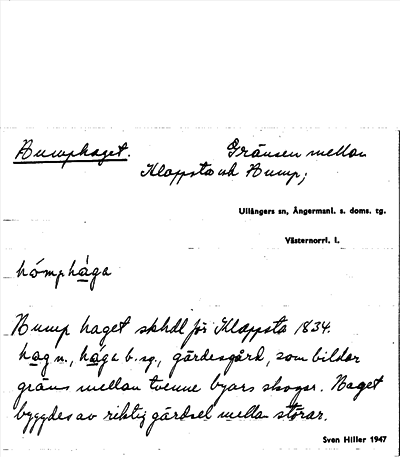 Humphaget. Gränsen mellan
Klappsta och Hump;
Ullångers sn, Ångermanl. s. doms. tg.
Västernorrl. l.
hómphåga
Hump haget skhdl för Klappsta 1834.
hag n., hága b. sg., gärdesgård, som bildar
gräns mellan tvenne byars skogar. Haget
byggdes av riktig gärdsel mella störar.
Sven Hiller 1947